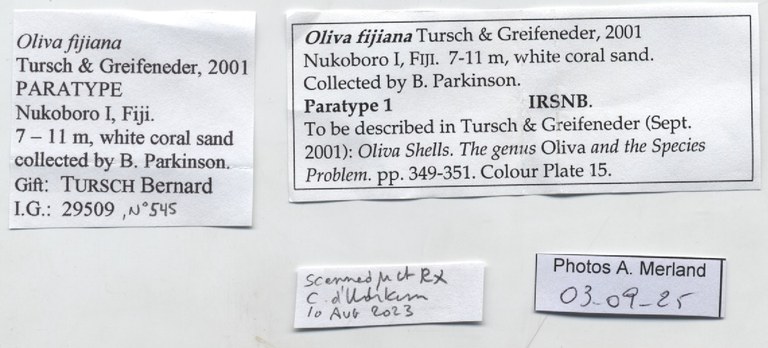 Oliva fijiana
Tursch & Greifeneder, 2001
PARATYPE
Nukoboro I, Fiji.
7 – 11 m, white coral sand
collected by B. Parkinson.
Gift: TURSCH Bernard
I.G.: 29509, N°545
Oliva fijiana Tursch & Greifeneder, 2001
Nukoboro I, FIJI. 7-11 m, white coral sand.
Collected by B. Parkinson.
Paratype 1 IRSNB.
To be described in Tursch & Greifeneder (Sept.
2001): Oliva Shells. The genus Oliva and the Species
Problem. pp. 349-351. Colour Plate 15.
Scanned µct RX
C. d'Udekem
10 AUG 2023
Photos A. Merland
03-09-25